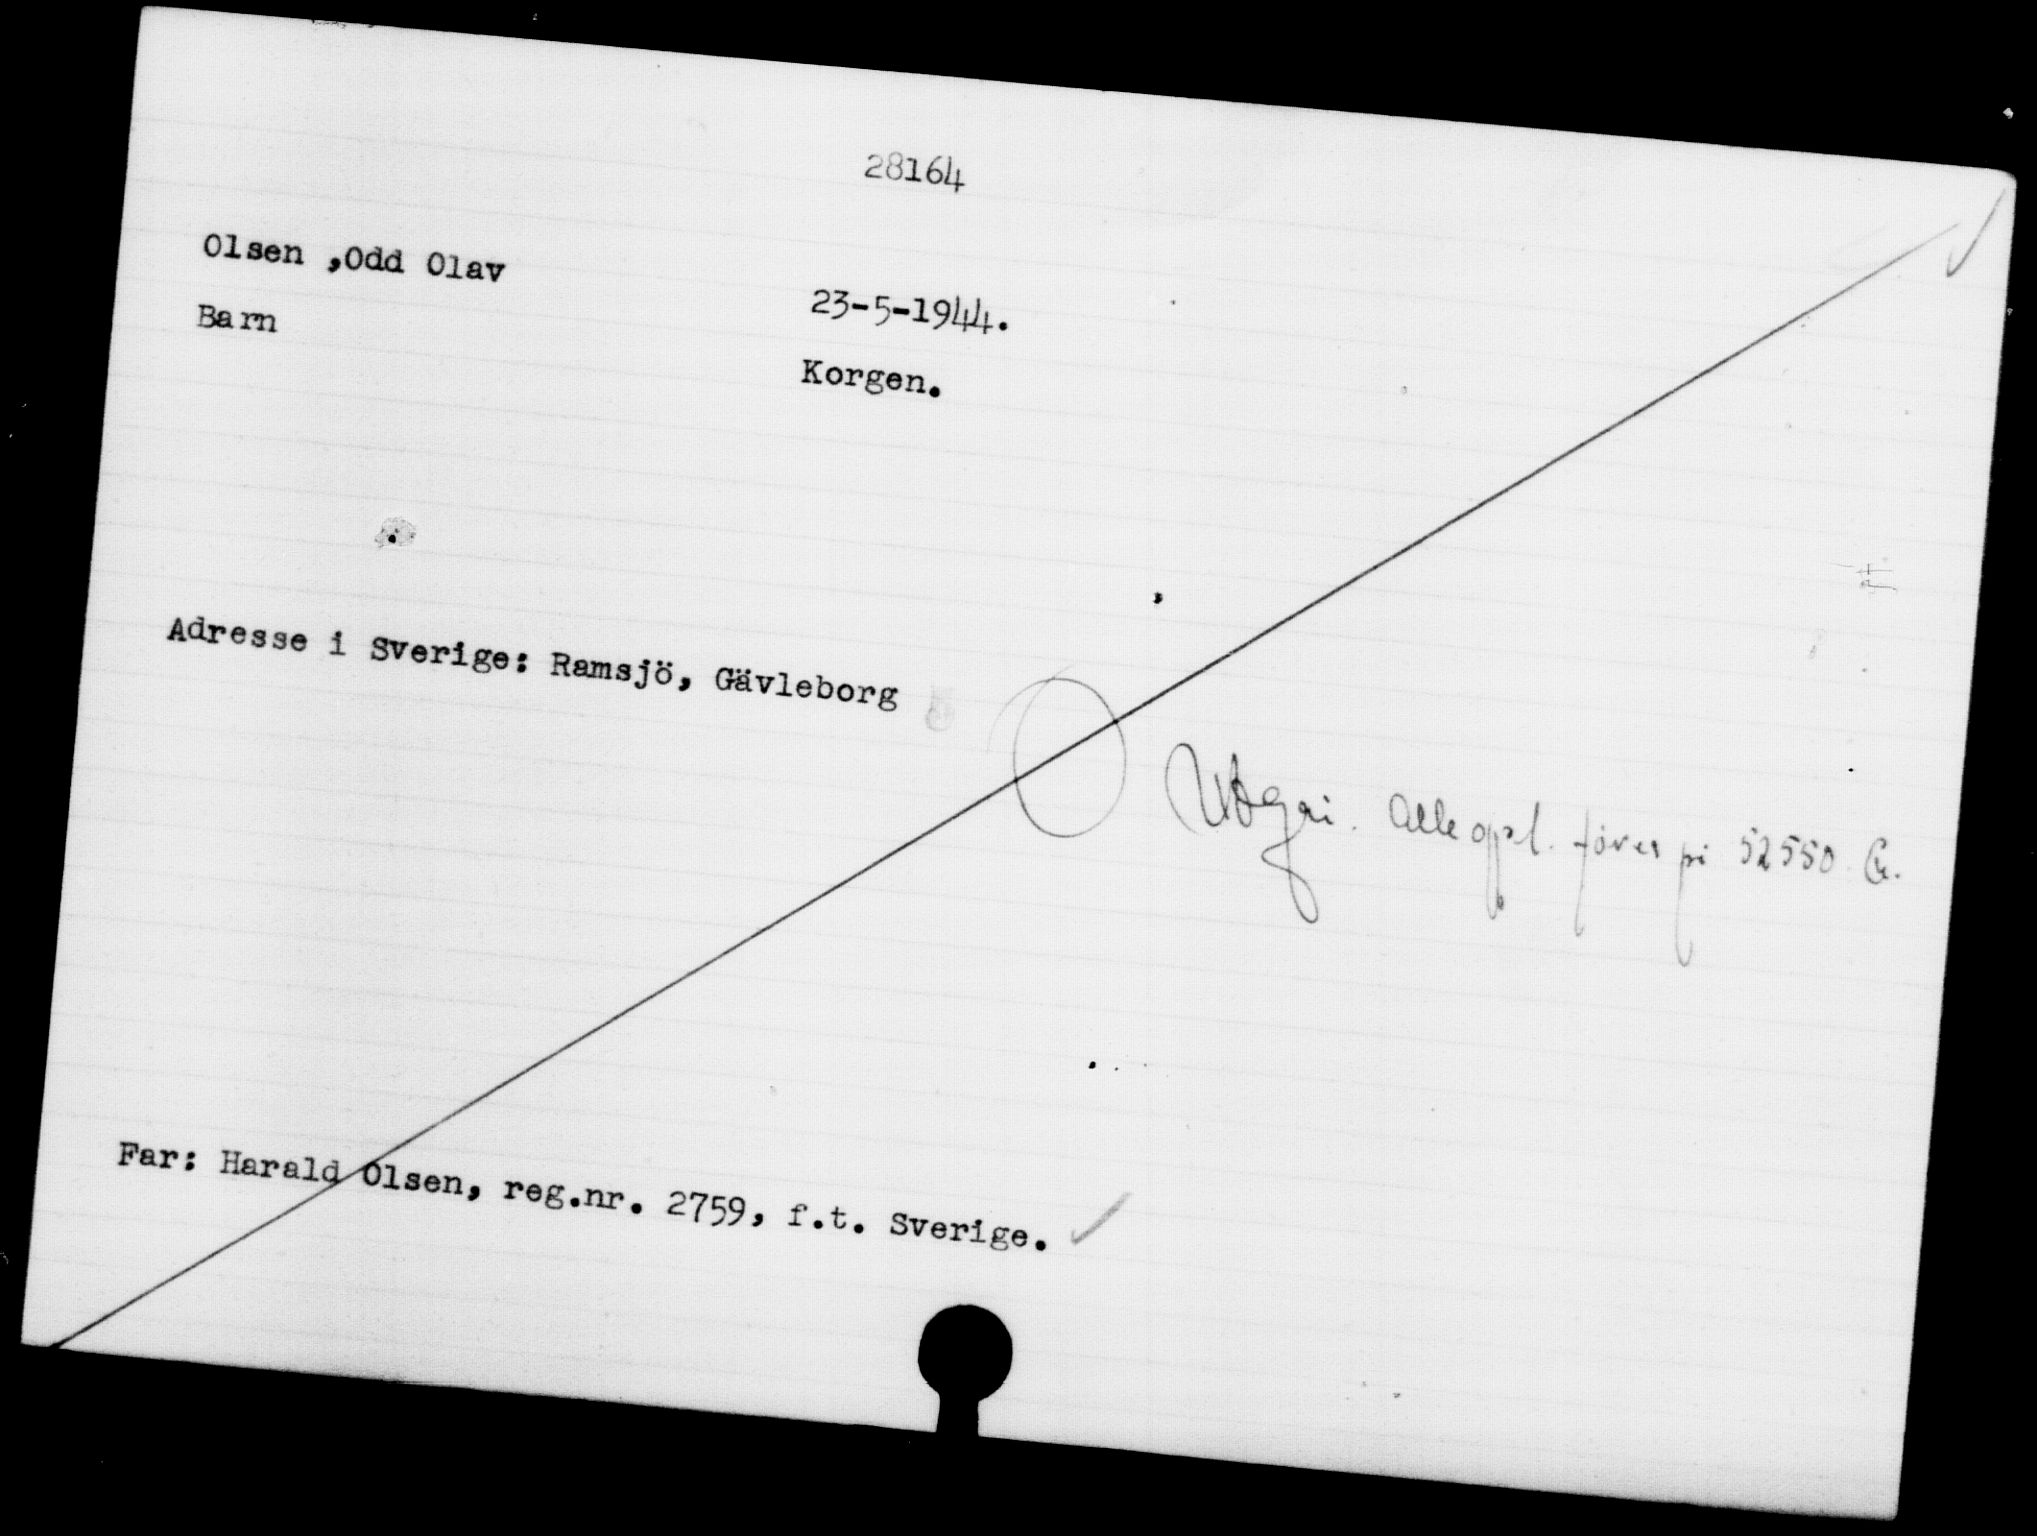 28164
Olsen ,Odd Olav
23-5-1944.
Barn
Korgen.
Adresse i Sverige: Ramsjö, Gävleborg
Utgår. Alle oppl. föres på 52550
Far: Harald Olsen, reg.nr. 2759, f.t. Sverige.